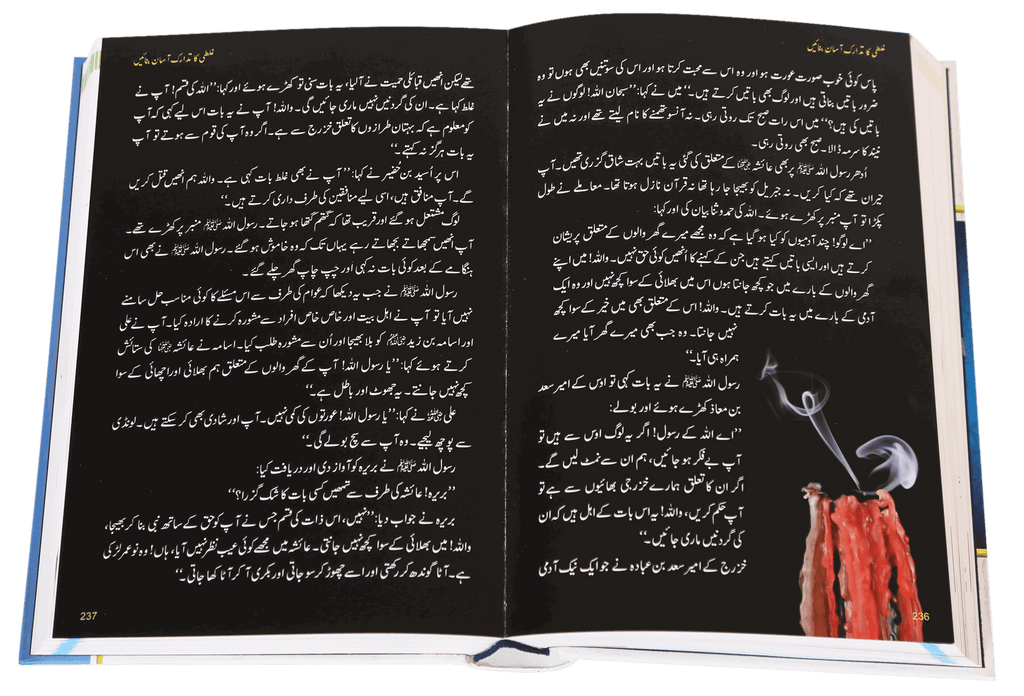 غلطی کا تدارک آسان بنائیں
پاس کوئی خوب صورت عورت ہو اور وہ اس سے محبت کرتا ہو اور اس کی سوتنیں بھی ہوں تو وہ
ضرور باتیں بناتی ہیں اور لوگ بھی باتیں کرتے ہیں۔‘‘ میں نے کہا: ’’سبحان اللہ! لوگوں نے یہ
باتیں کی ہیں؟‘‘ میں اس رات صبح تک روتی رہی۔ نہ آنسو تھمنے کا نام لیتے تھے اور نہ میں نے
نیند کا سرمہ ڈالا۔ صبح بھی روتی رہی۔
اُدھر رسول اللہ ﷺ پر بھی عائشہ رضی اللہ عنہا کے متعلق کی گئی یہ باتیں بہت شاق گزری تھیں۔ آپ
حیران تھے کہ کیا کریں۔ نہ جبریل کو بھیجا جا رہا تھا نہ قرآن نازل ہوتا تھا۔ معاملے نے طول
پکڑا تو آپ منبر پر کھڑے ہوئے۔ اللہ کی حمد و ثنا بیان کی اور کہا:
’’اے لوگو! چند آدمیوں کو کیا ہو گیا ہے کہ وہ مجھے میرے گھر والوں کے متعلق پریشان
کرتے ہیں اور ایسی باتیں کہتے ہیں جن کے کہنے کا انھیں کوئی حق نہیں۔ واللہ! میں اپنے
گھر والوں کے بارے میں جو کچھ جانتا ہوں اس میں بھلائی کے سوا کچھ نہیں اور وہ ایک
آدمی کے بارے میں یہ بات کرتے ہیں۔ واللہ! اس کے متعلق بھی میں خیر کے سوا کچھ
نہیں جانتا۔ وہ جب بھی میرے گھر آیا میرے
ہمراہ ہی آیا۔‘‘
رسول اللہ ﷺ نے یہ بات کہی تو اوس کے امیر سعد
بن معاذ کھڑے ہوئے اور بولے:
’’اے اللہ کے رسول! اگر یہ لوگ اوس سے ہیں تو
آپ بے فکر ہو جائیں، ہم ان سے نمٹ لیں گے۔
اگر ان کا تعلق ہمارے خزرجی بھائیوں سے ہے تو
آپ حکم کریں، واللہ! یہ اس بات کے اہل ہیں کہ ان
کی گردنیں ماری جائیں۔‘‘
خزرج کے امیر سعد بن عبادہ نے جو ایک نیک آدمی
236
غلطی کا تدارک آسان بنائیں
تھے لیکن انھیں قبائلی حمیت نے آلیا، یہ بات سنی تو کھڑے ہوئے اور کہا: ’’اللہ کی قسم! آپ نے
غلط کہا ہے۔ ان کی گردنیں نہیں ماری جائیں گی۔ واللہ! آپ نے یہ بات اس لیے کہی کہ آپ
کو معلوم ہے کہ بہتان طرازوں کا تعلق خزرج سے ہے۔ اگر وہ آپ کی قوم سے ہوتے تو آپ
یہ بات ہرگز نہ کہتے۔‘‘
اس پر اُسید بن حُضیر نے کہا: ’’آپ نے بھی غلط بات کہی ہے۔ واللہ ہم انھیں قتل کریں
گے۔ آپ منافق ہیں، اسی لیے منافقین کی طرف داری کرتے ہیں۔‘‘
لوگ مشتعل ہو گئے اور قریب تھا کہ گتھم گتھا ہو جاتے۔ رسول اللہ ﷺ منبر پر کھڑے تھے۔
آپ انھیں سمجھاتے بجھاتے رہے یہاں تک کہ وہ خاموش ہو گئے۔ رسول اللہ ﷺ نے بھی اس
ہنگامے کے بعد کوئی بات نہ کہی اور چپ چاپ گھر چلے گئے۔
رسول اللہ ﷺ نے جب یہ دیکھا کہ عوام کی طرف سے اس مسئلے کا کوئی مناسب حل سامنے
نہیں آیا تو آپ نے اہل بیت اور خاص خاص افراد سے مشورہ کرنے کا ارادہ کیا۔ آپ نے علی
اور اسامہ بن زید رضی اللہ عنہم کو بلا بھیجا اور اُن سے مشورہ طلب کیا۔ اسامہ نے عائشہ رضی اللہ عنہا کی ستائش
کرتے ہوئے کہا: ’’یا رسول اللہ! آپ کے گھر والوں کے متعلق ہم بھلائی اور اچھائی کے سوا
کچھ نہیں جانتے۔ یہ جھوٹ اور باطل ہے۔‘‘
علی رضی اللہ عنہ نے کہا: ’’یا رسول اللہ! عورتوں کی کمی نہیں۔ آپ اور شادی بھی کر سکتے ہیں۔ لونڈی
سے پوچھ لیجیے۔ وہ آپ سے سچ بولے گی۔‘‘
رسول اللہ ﷺ نے بریرہ کو آواز دی اور دریافت کیا:
’’بریرہ! عائشہ کی طرف سے تمھیں کسی بات کا شک گزرا؟‘‘
بریرہ نے جواب دیا: ’’نہیں، اس ذات کی قسم جس نے آپ کو حق کے ساتھ نبی بنا کر بھیجا،
واللہ! میں بھلائی کے سوا کچھ نہیں جانتی۔ عائشہ میں مجھے کوئی عیب نظر نہیں آیا، ہاں! وہ نو عمر لڑکی
ہے۔ آٹا گوندھ کر رکھتی اور اسے چھوڑ کر سو جاتی اور بکری آ کر آٹا کھا جاتی۔‘‘
237